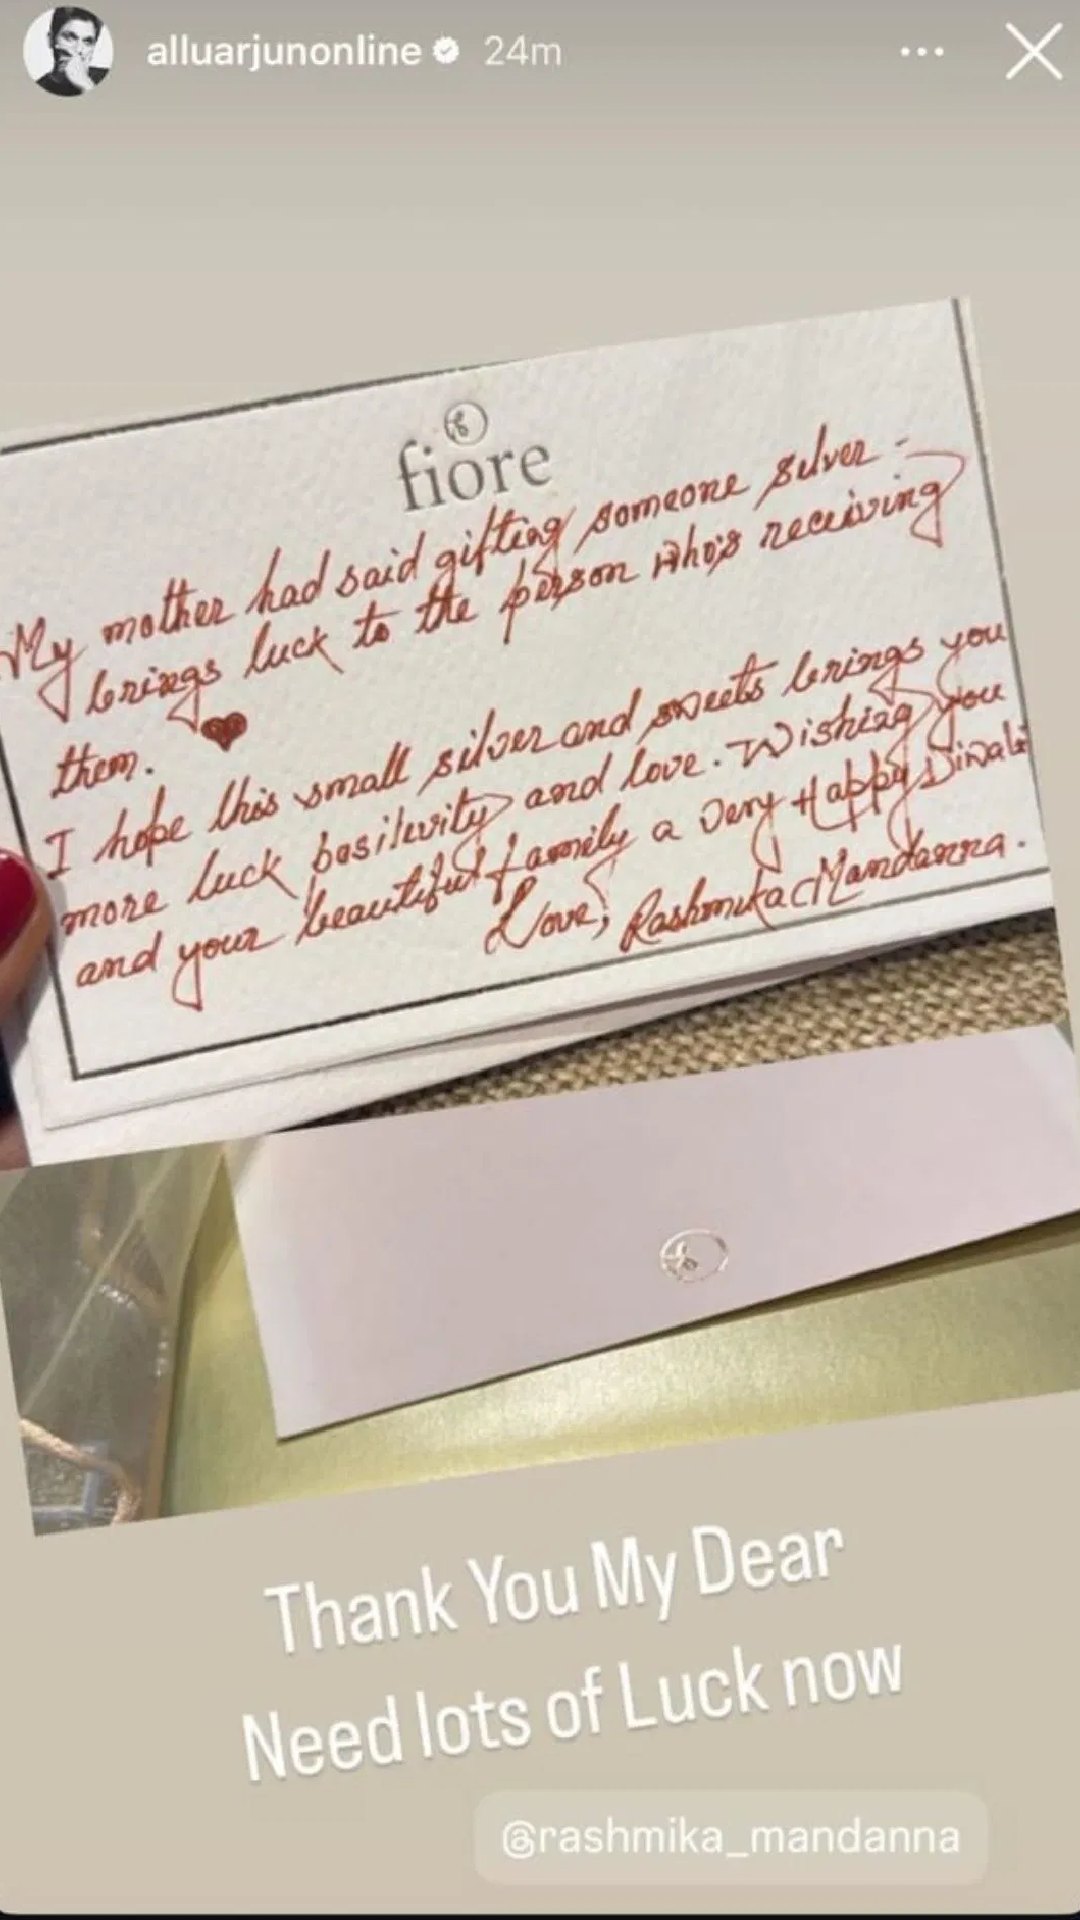 alluarjunonline 24m
fiore
My mother had said gifting someone silver -
brings luck to the person who's receiving
them. ♥
I hope this small silver and sweets brings you
more luck positivity and love. Wishing you
and your beautiful family a very Happy Diwali
Love, Rashmika Mandanna.
Thank You My Dear
Need lots of Luck now
@rashmika_mandanna